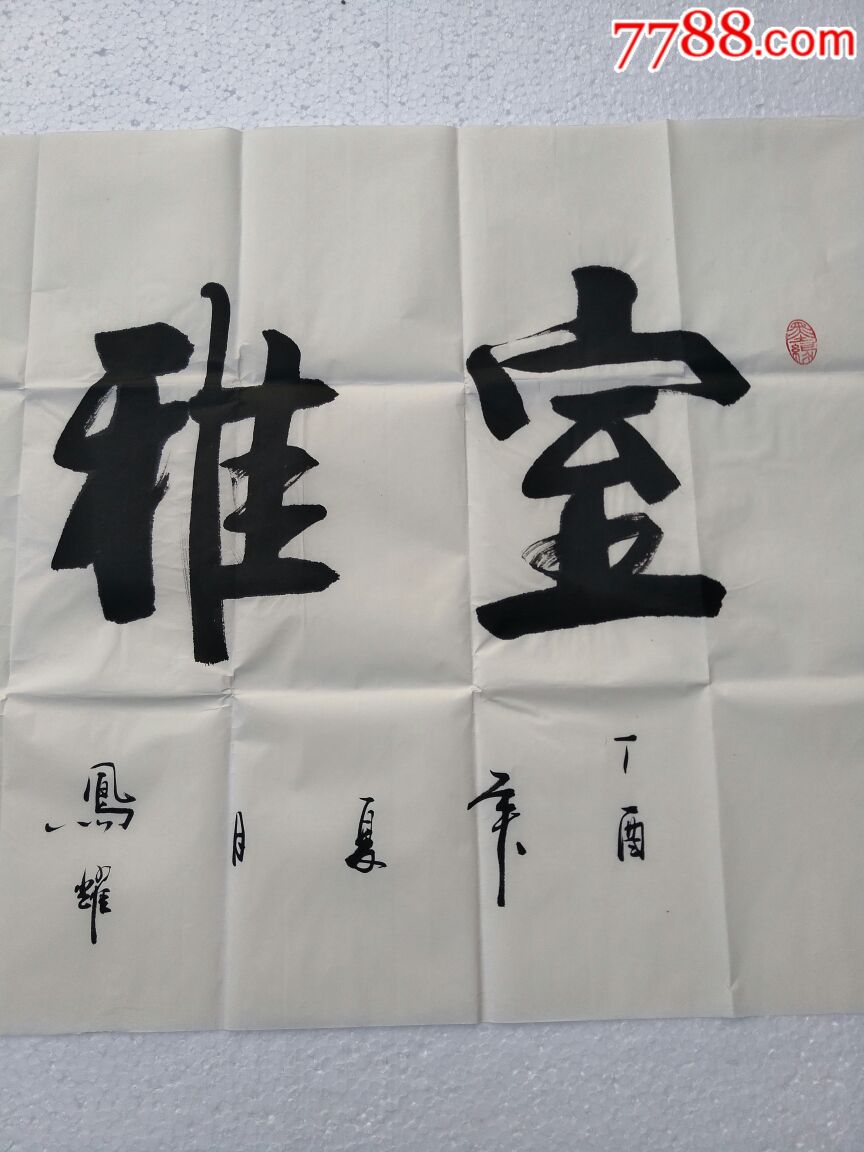 7788.com
室雅
丁酉
年
夏
月
鳳耀
墨缘